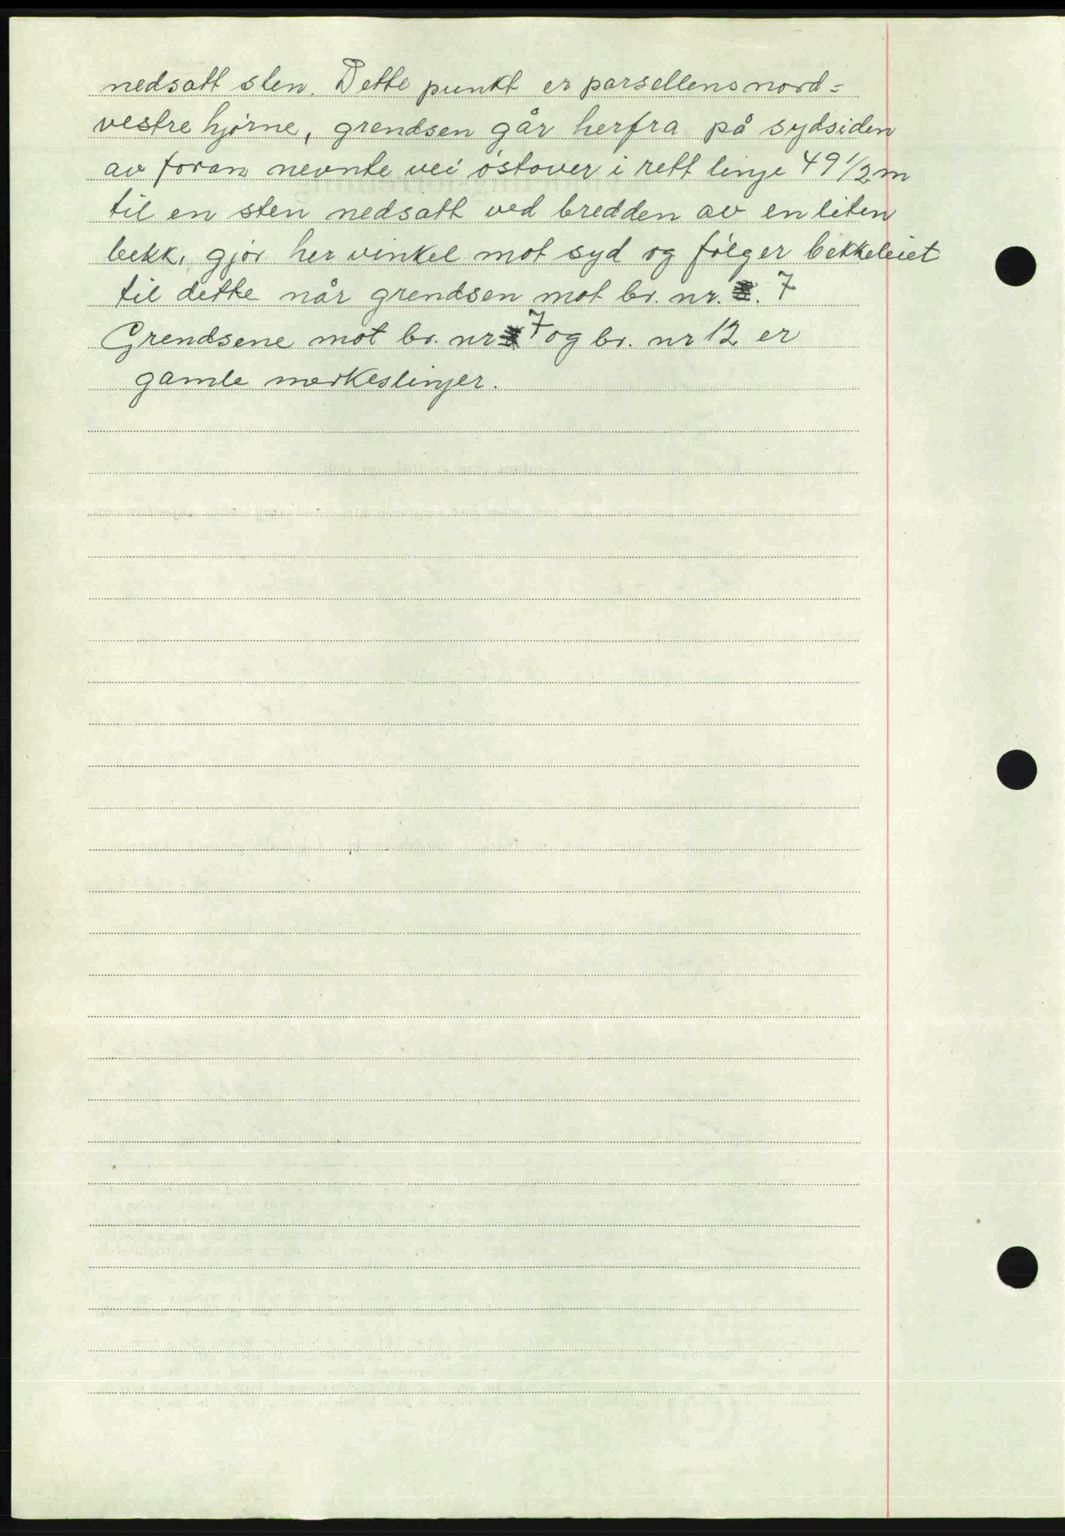 nedsatt sten. Dette punkt er parsellens nord-
vestre hjørne, grendsen går herfra på sydsiden
av foran nevnte vei østover i rett linje 49 1/2 m
til en sten nedsatt ved bredden av en liten
bekk, gjør her vinkel mot syd og følger bekkeleiet
til dette når grendsen mot br. nr. 7
Grendsene mot br. nr 7 og br. nr 12 er
gamle merkeslinjer.